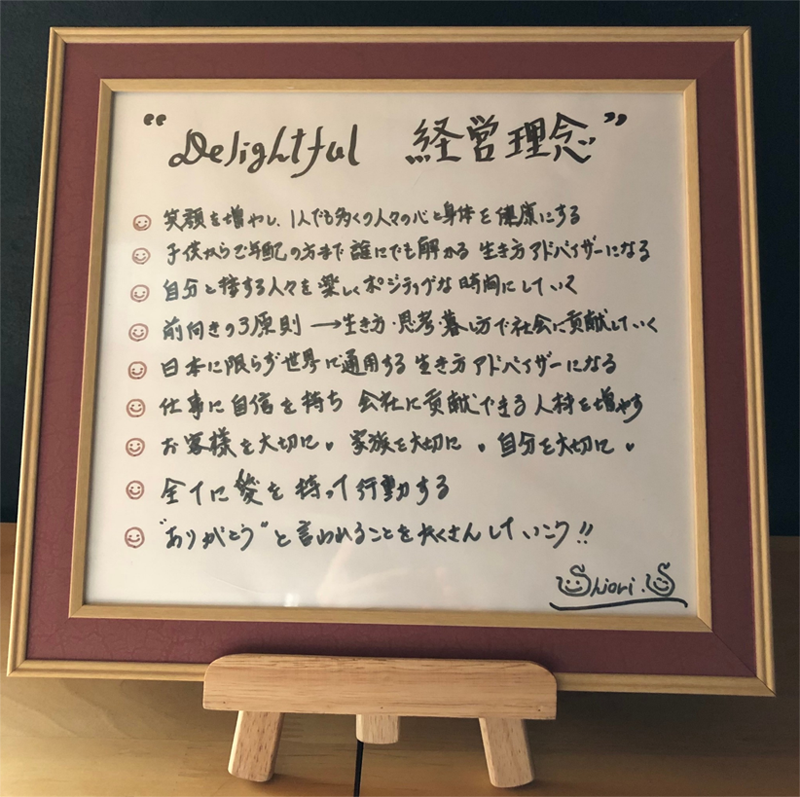 “Delightful 経営理念”
笑顔を増やし、1人でも多くの人々の心と身体を健康にする
子供からご年配の方まで誰にでも解かる 生き方アドバイザーになる
自分と接する人々を楽しくポジティブな時間にしていく
前向きの3原則 →生き方・思考・暮し方で社会に貢献していく
日本に限らず世界に通用する生き方アドバイザーになる
仕事に自信を持ち 会社に貢献できる人材を増やす
お客様を大切に♥ 家族を大切に♥ 自分を大切に♥
全てに愛を持って行動する
“ありがとう”と言われることをたくさんしていこう!!
Shiori.S